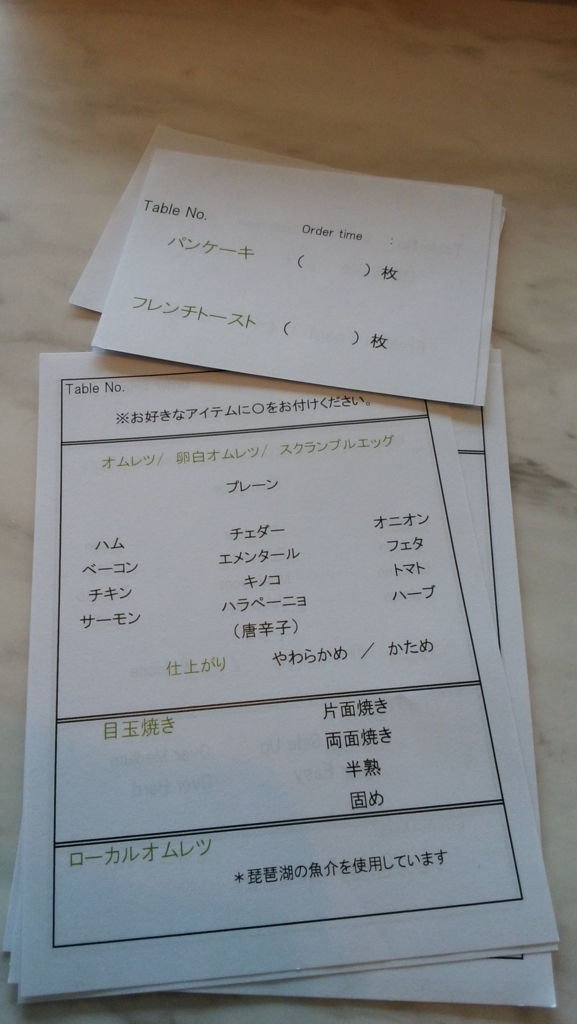 Table No.
Order time :
パンケーキ ( ) 枚
フレンチトースト ( ) 枚
Table No.
※お好きなアイテムに〇をお付けください。
オムレツ/ 卵白オムレツ/ スクランブルエッグ
プレーン
ハム チェダー オニオン
ベーコン エメンタール フェタ
チキン キノコ トマト
サーモン ハラペーニョ ハーブ
(唐辛子)
仕上がり やわらかめ / かため
目玉焼き 片面焼き
両面焼き
半熟
固め
ローカルオムレツ
＊琵琶湖の魚介を使用しています